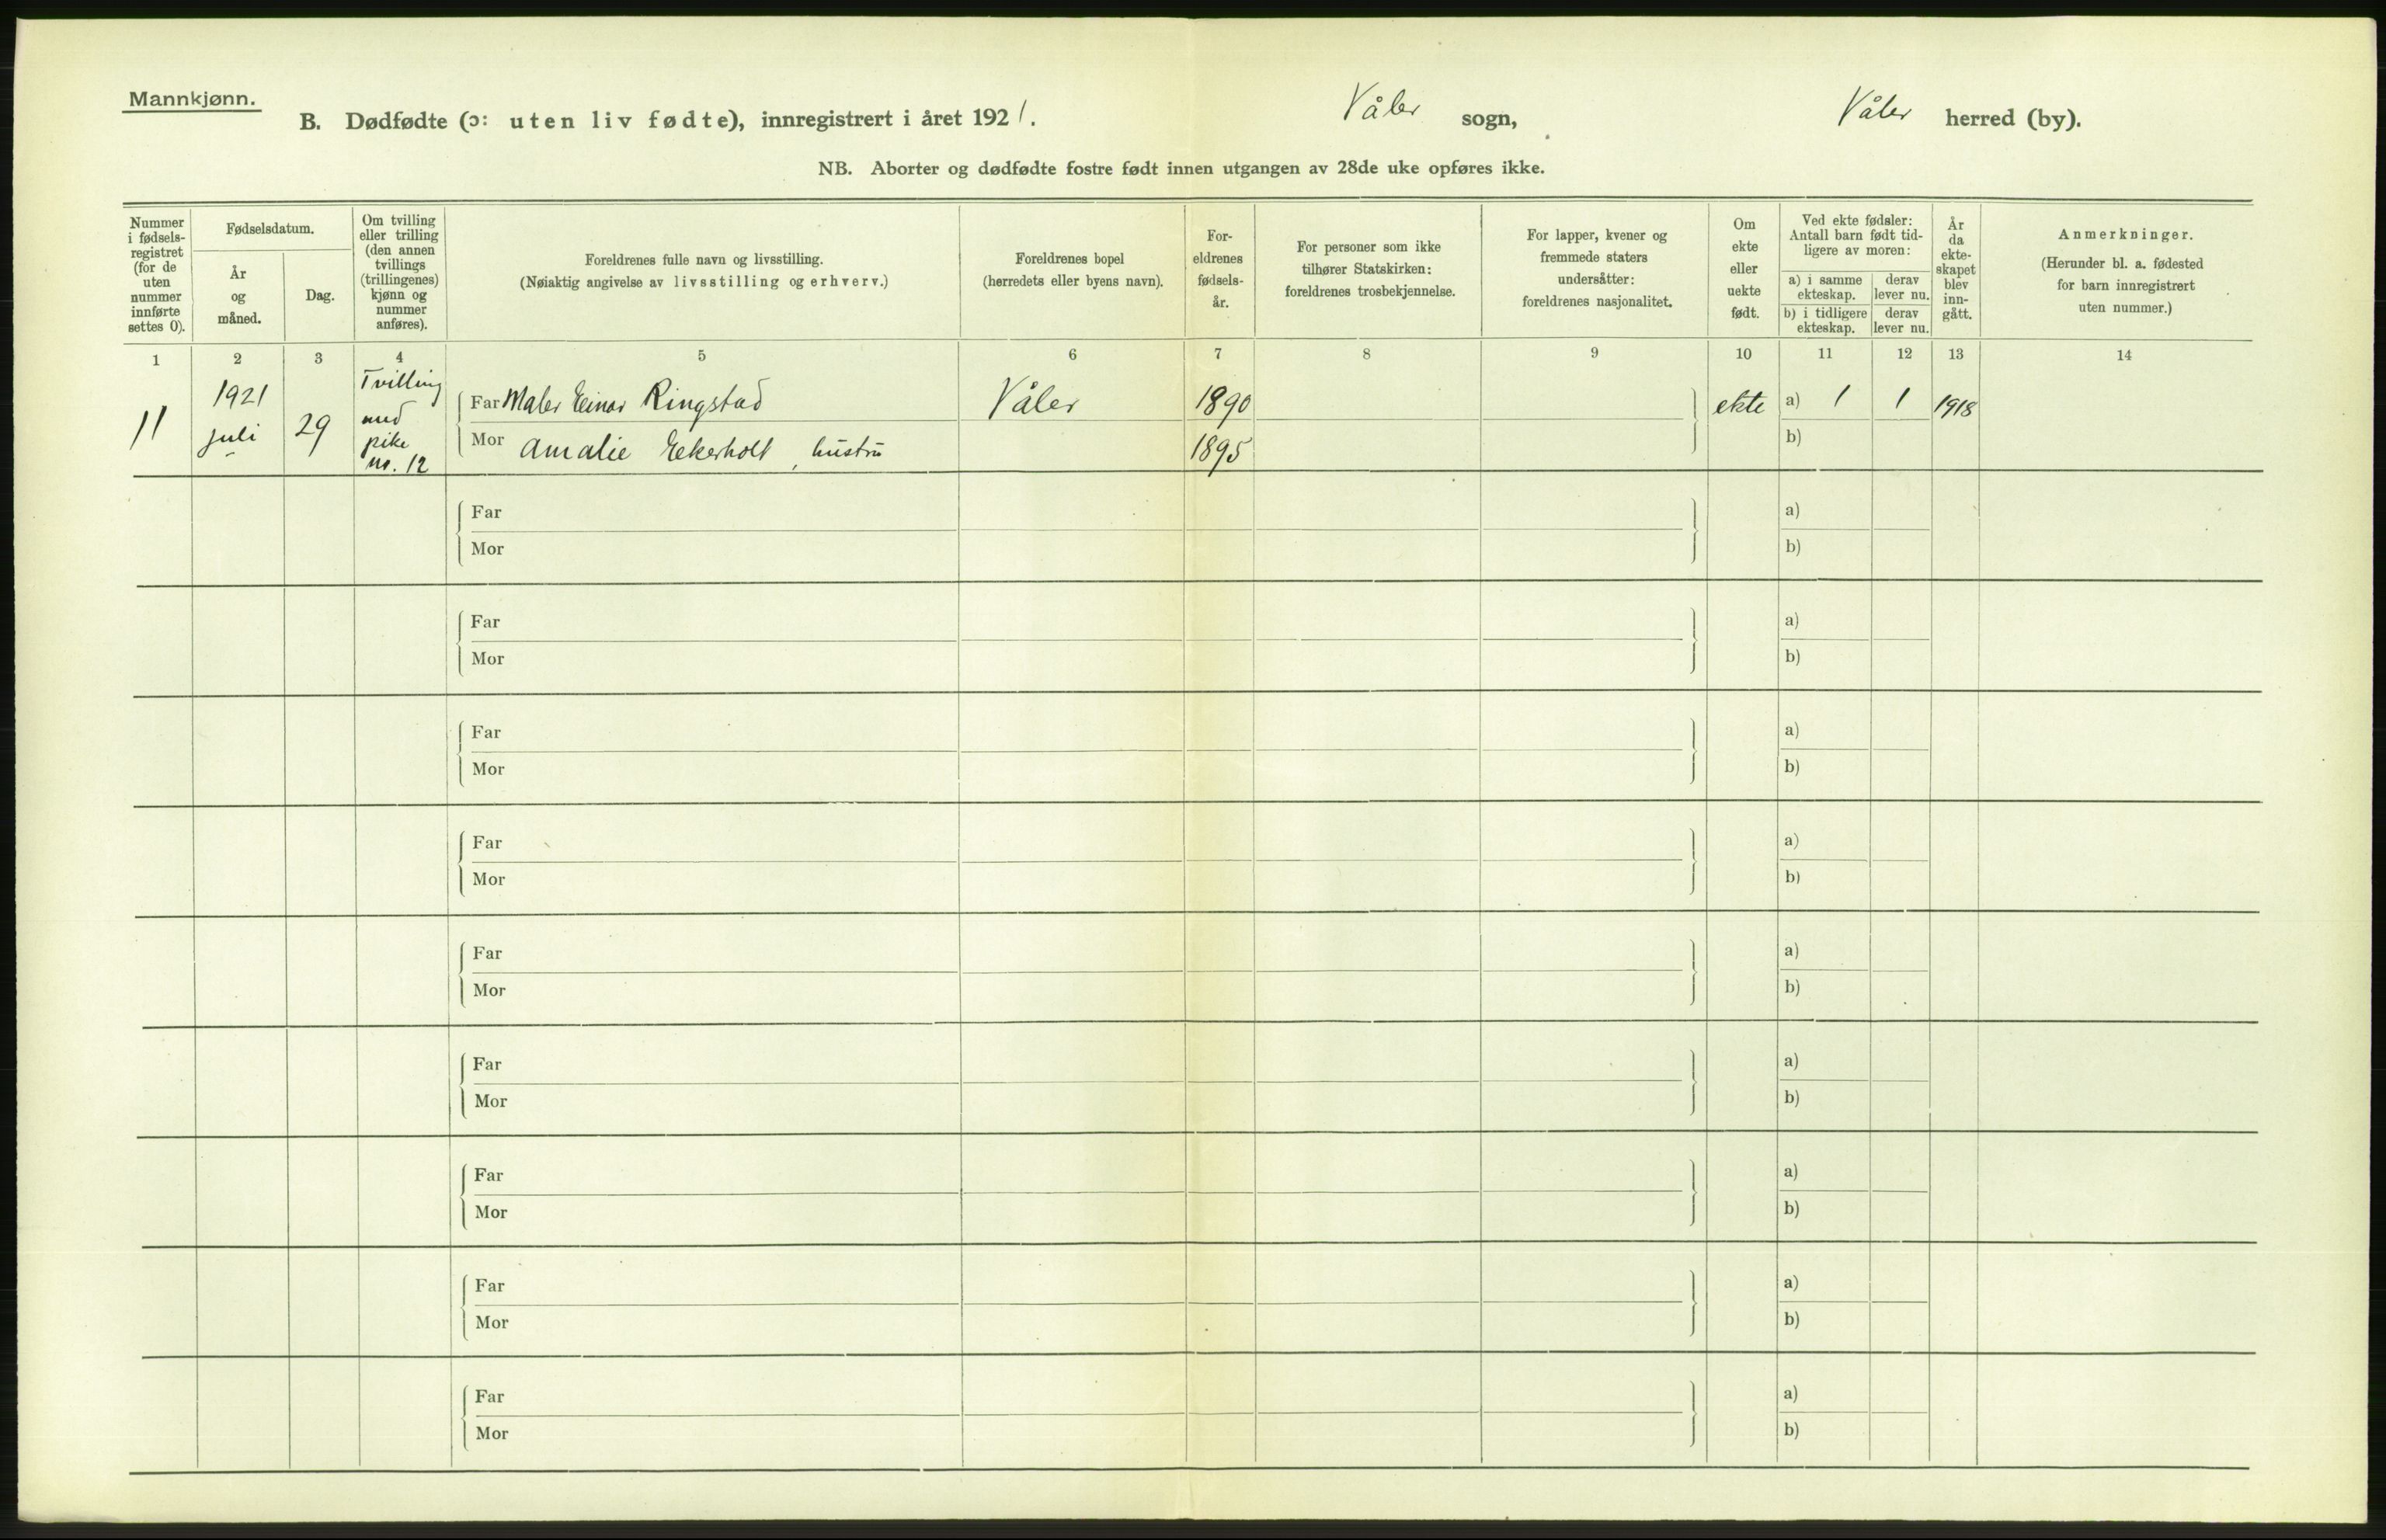 Mannkjønn.
B. Dødfødte (ɔ: uten liv fødte), innregistrert i året 1921. Våler sogn, Våler herred (by).
NB. Aborter og dødfødte fostre født innen utgangen av 28de uke opføres ikke.
Nummer i fødsels-registret (for de uten nummer innførte settes 0).
Fødselsdatum.
År og måned.
Dag.
Om tvilling eller trilling (den annen tvillings (trillingenes) kjønn og nummer anføres).
Foreldrenes fulle navn og livsstilling.
(Nøiaktig angivelse av livsstilling og erhverv.)
Foreldrenes bopel
(herredets eller byens navn).
For-eldrenes fødsels-år.
For personer som ikke
tilhører Statskirken:
foreldrenes trosbekjennelse.
For lapper, kvener og
fremmede staters
undersåtter:
foreldrenes nasjonalitet.
Om ekte eller uekte født.
Ved ekte fødsler:
Antall barn født tid-
ligere av moren:
a) i samme ekteskap. derav lever nu.
b) i tidligere ekteskap. derav lever nu.
År da ekte-skapet blev inn-gått.
Anmerkninger.
(Herunder bl. a. fødested
for barn innregistrert
uten nummer.)
1 2 3 4 5 6 7 8 9 10 11 12 13 14
11 1921 juli 29 Tvilling med pike no. 12
Far Maler Einar Ringstad Våler 1890 ekte a) 1 1 1918
Mor Amalie Ekerholt, hustru 1895 b)
Far a)
Mor b)
Far a)
Mor b)
Far a)
Mor b)
Far a)
Mor b)
Far a)
Mor b)
Far a)
Mor b)
Far a)
Mor b)
Far a)
Mor b)
Far a)
Mor b)